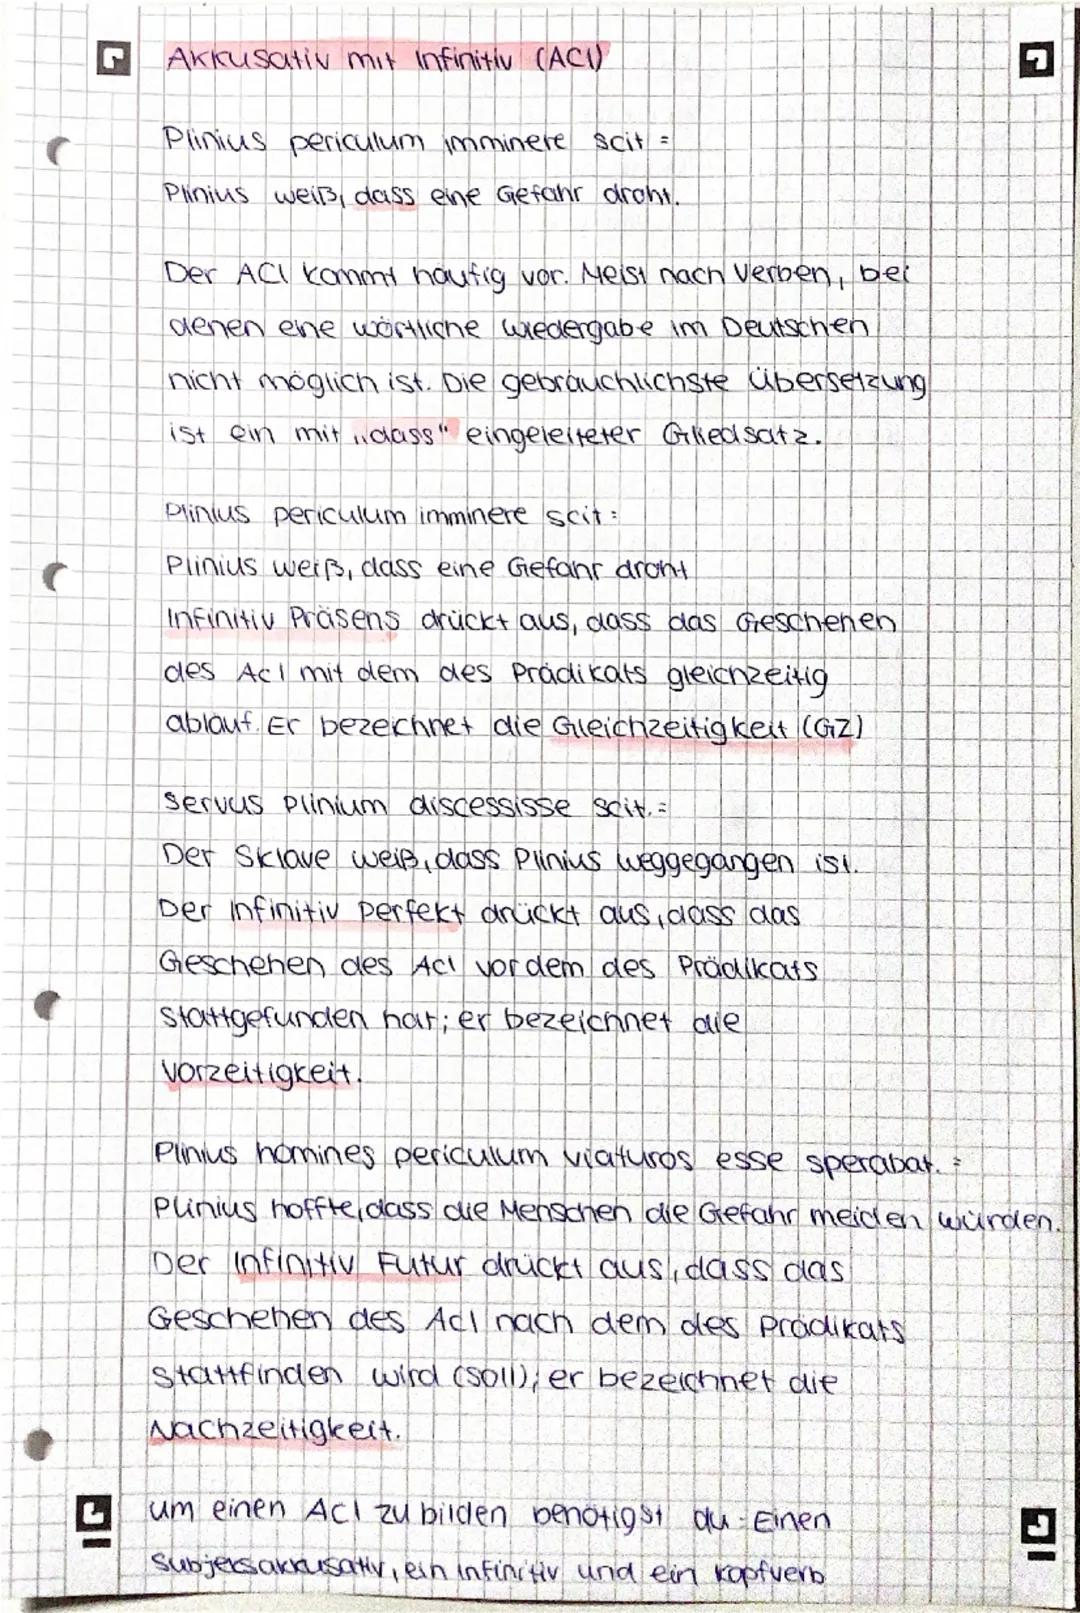 Akkusativ mit Infinitiv (ACI)
Plinius periculum imminere scit =
Plinius weiß, dass eine Gefahr droht.
Der ACI kommt häufig vor. Meist nach Verben, bei
denen eine wörtliche Wiedergabe im Deutschen
nicht möglich ist. Die gebräuchlichste Übersetzung
ist ein mit „dass" eingeleiteter Gliedsatz.
Plinius periculum imminere scit =
Plinius weiß, dass eine Gefahr droht
Infinitiv Präsens drückt aus, dass das Geschehen
des AcI mit dem des Prädikats gleichzeitig
abläuf. Er bezeichnet die Gleichzeitigkeit (GZ)
Servus Plinium discessisse scit. =
Der Sklave weiß, dass Plinius weggegangen ist.
Der Infinitiv Perfekt drückt aus, dass das
Geschehen des AcI vor dem des Prädikats
stattgefunden hat; er bezeichnet die
Vorzeitigkeit.
Plinius homines periculum viaturos esse sperabat. =
Plinius hoffte, dass die Menschen die Gefahr meiden würden.
Der Infinitiv Futur drückt aus, dass das
Geschehen des AcI nach dem des Prädikats
stattfinden wird (soll); er bezeichnet die
Nachzeitigkeit.
um einen ACI zu bilden benötigst du: Einen
Subjeksakkusativ, ein Infinitiv und ein Kopfverb